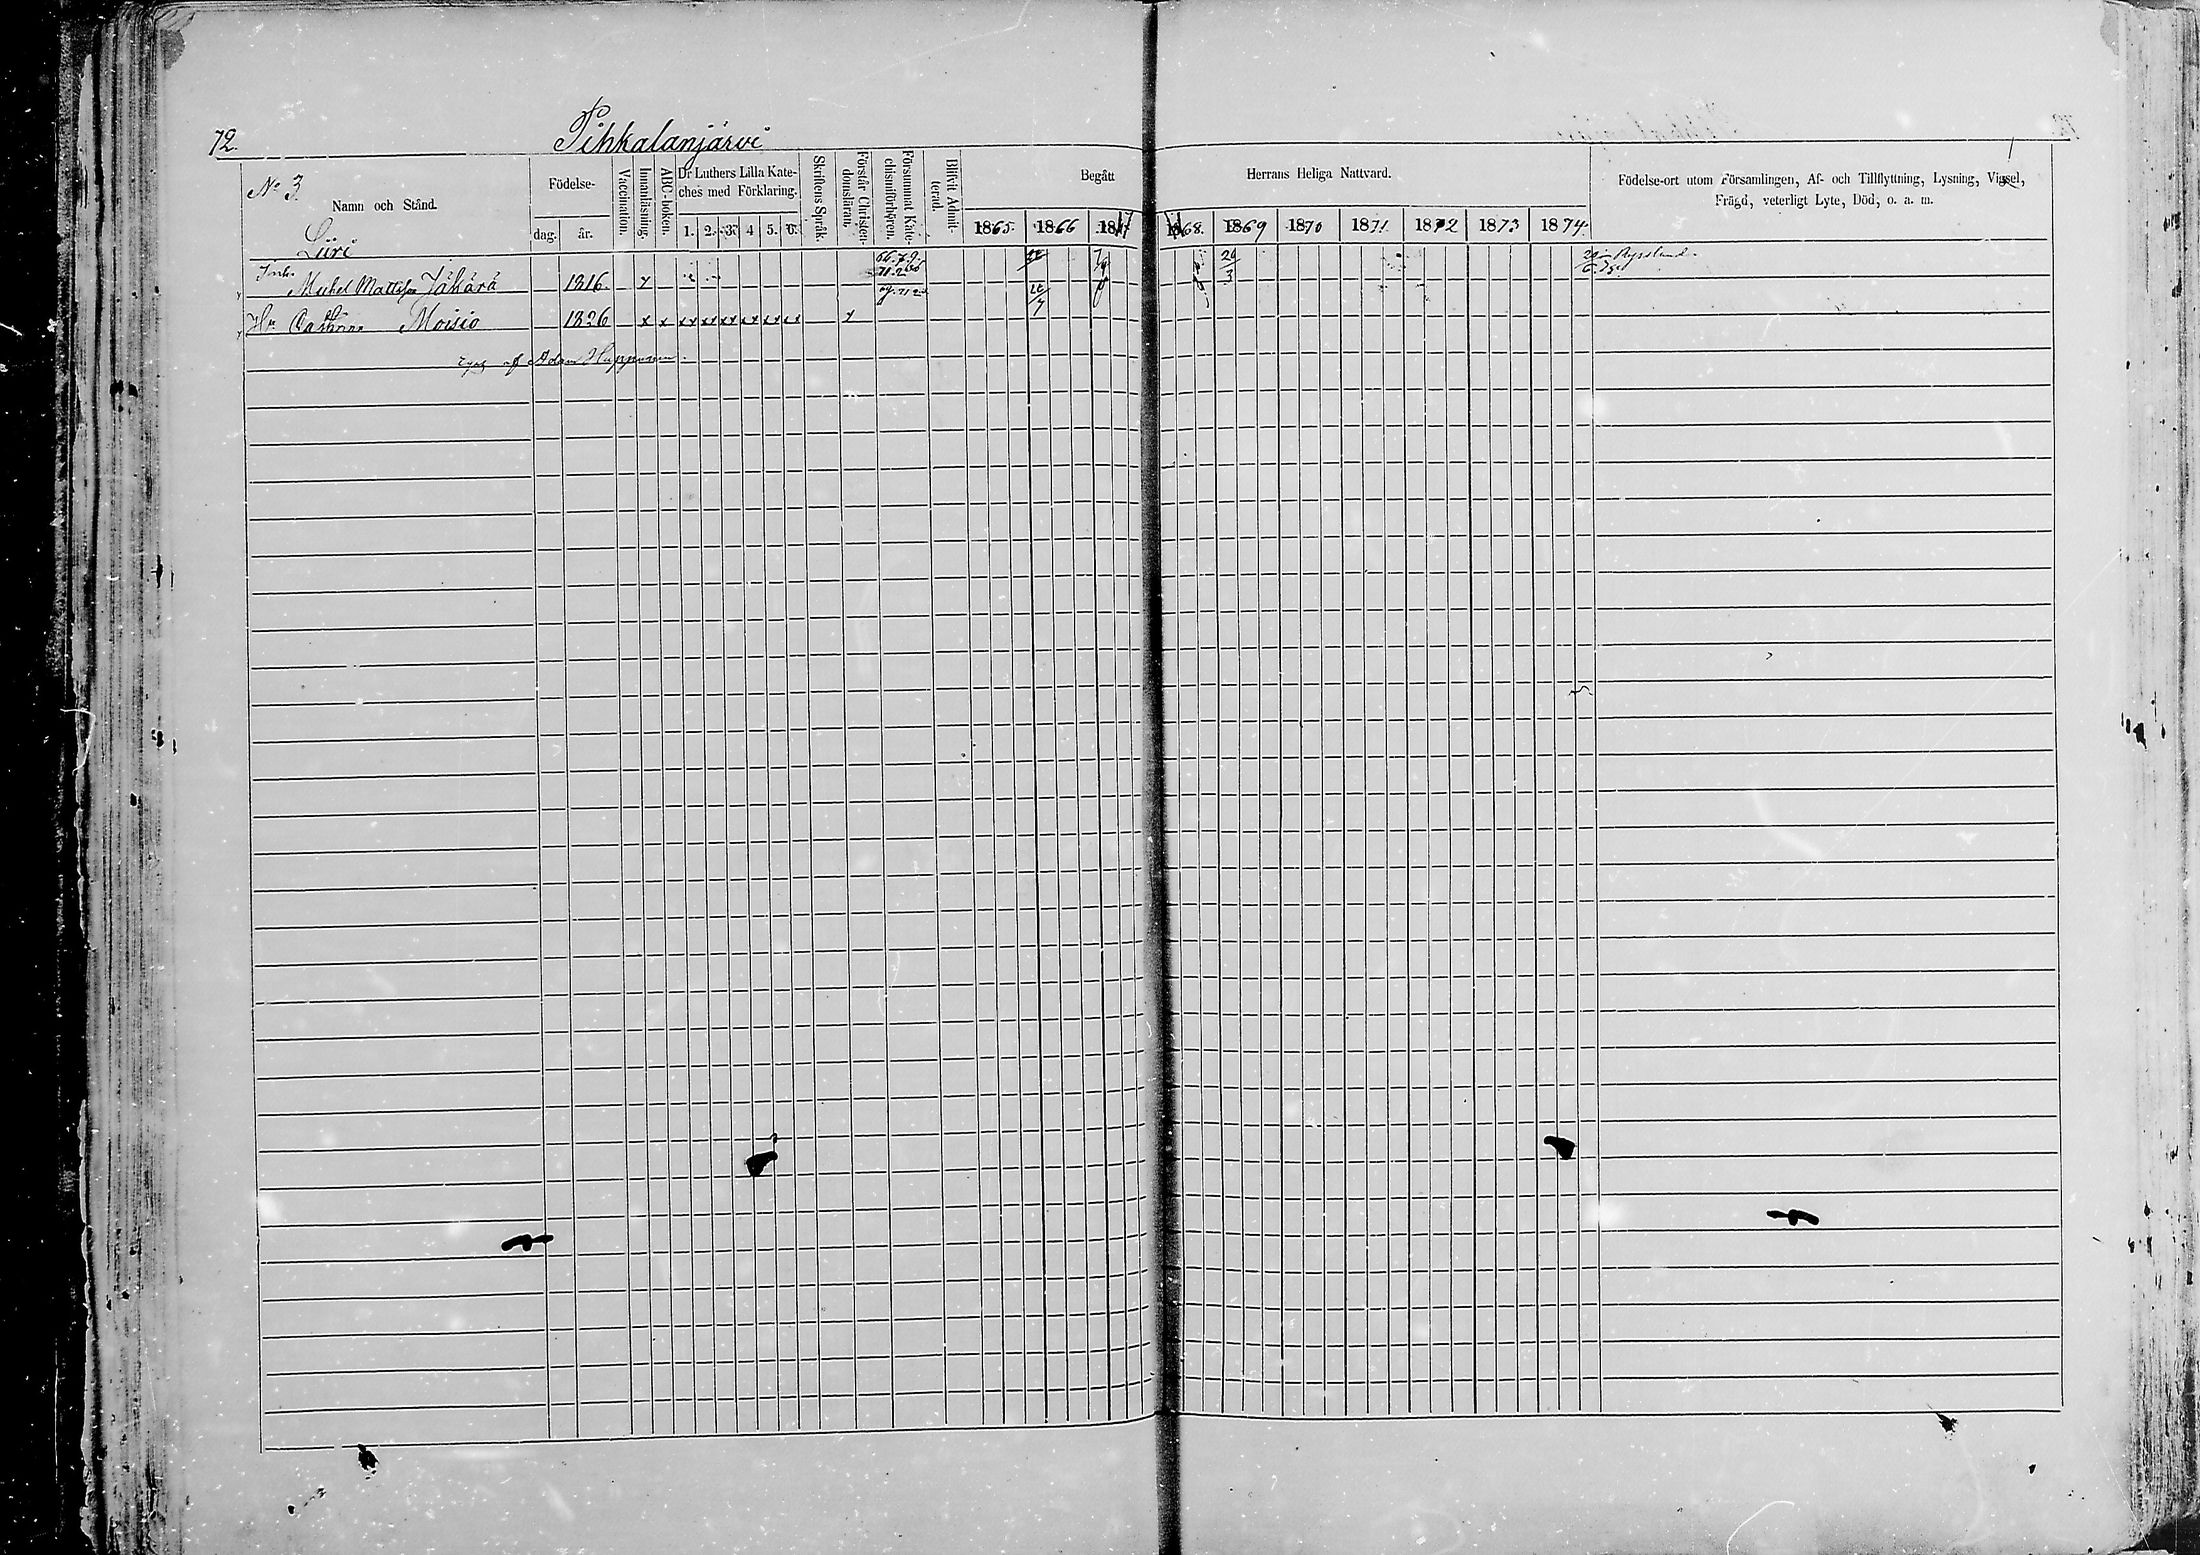 72.
Pihkalanjärvi
No 3.
Namn och Stånd.
Födelse-
dag. år.
Vaccination.
Innanläsning.
ABC-boken.
Dr Luthers Lilla Kate-
ches med Förklaring.
1. 2. 3. 4 5. 6.
Skriftens Språk.
Förstår Christen-
domsläran.
Försummat Kate-
chismiförhören.
Blifvit Admit-
terad.
Begått Herrans Heliga Nattvard.
1865. 1866 1867 1868. 1869 1870 1871 1872 1873 1874.
Födelse-ort utom Församlingen, Af- och Tillflyttning, Lysning, Vigsel,
Frägd, veterligt Lyte, Död, o. a. m.
Liiri
Inh. Michel Jähärä 1816. x 26/3 Ryssland.
Hu Moisio 1826 x x xx xx xx xx xx xx x 22/7
af Adam Huppunen.